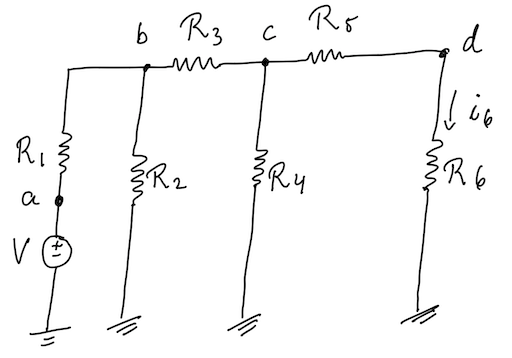 b R₃ c R₅ d
i₆
R₁ R₂ R₄ R₆
a
V + −